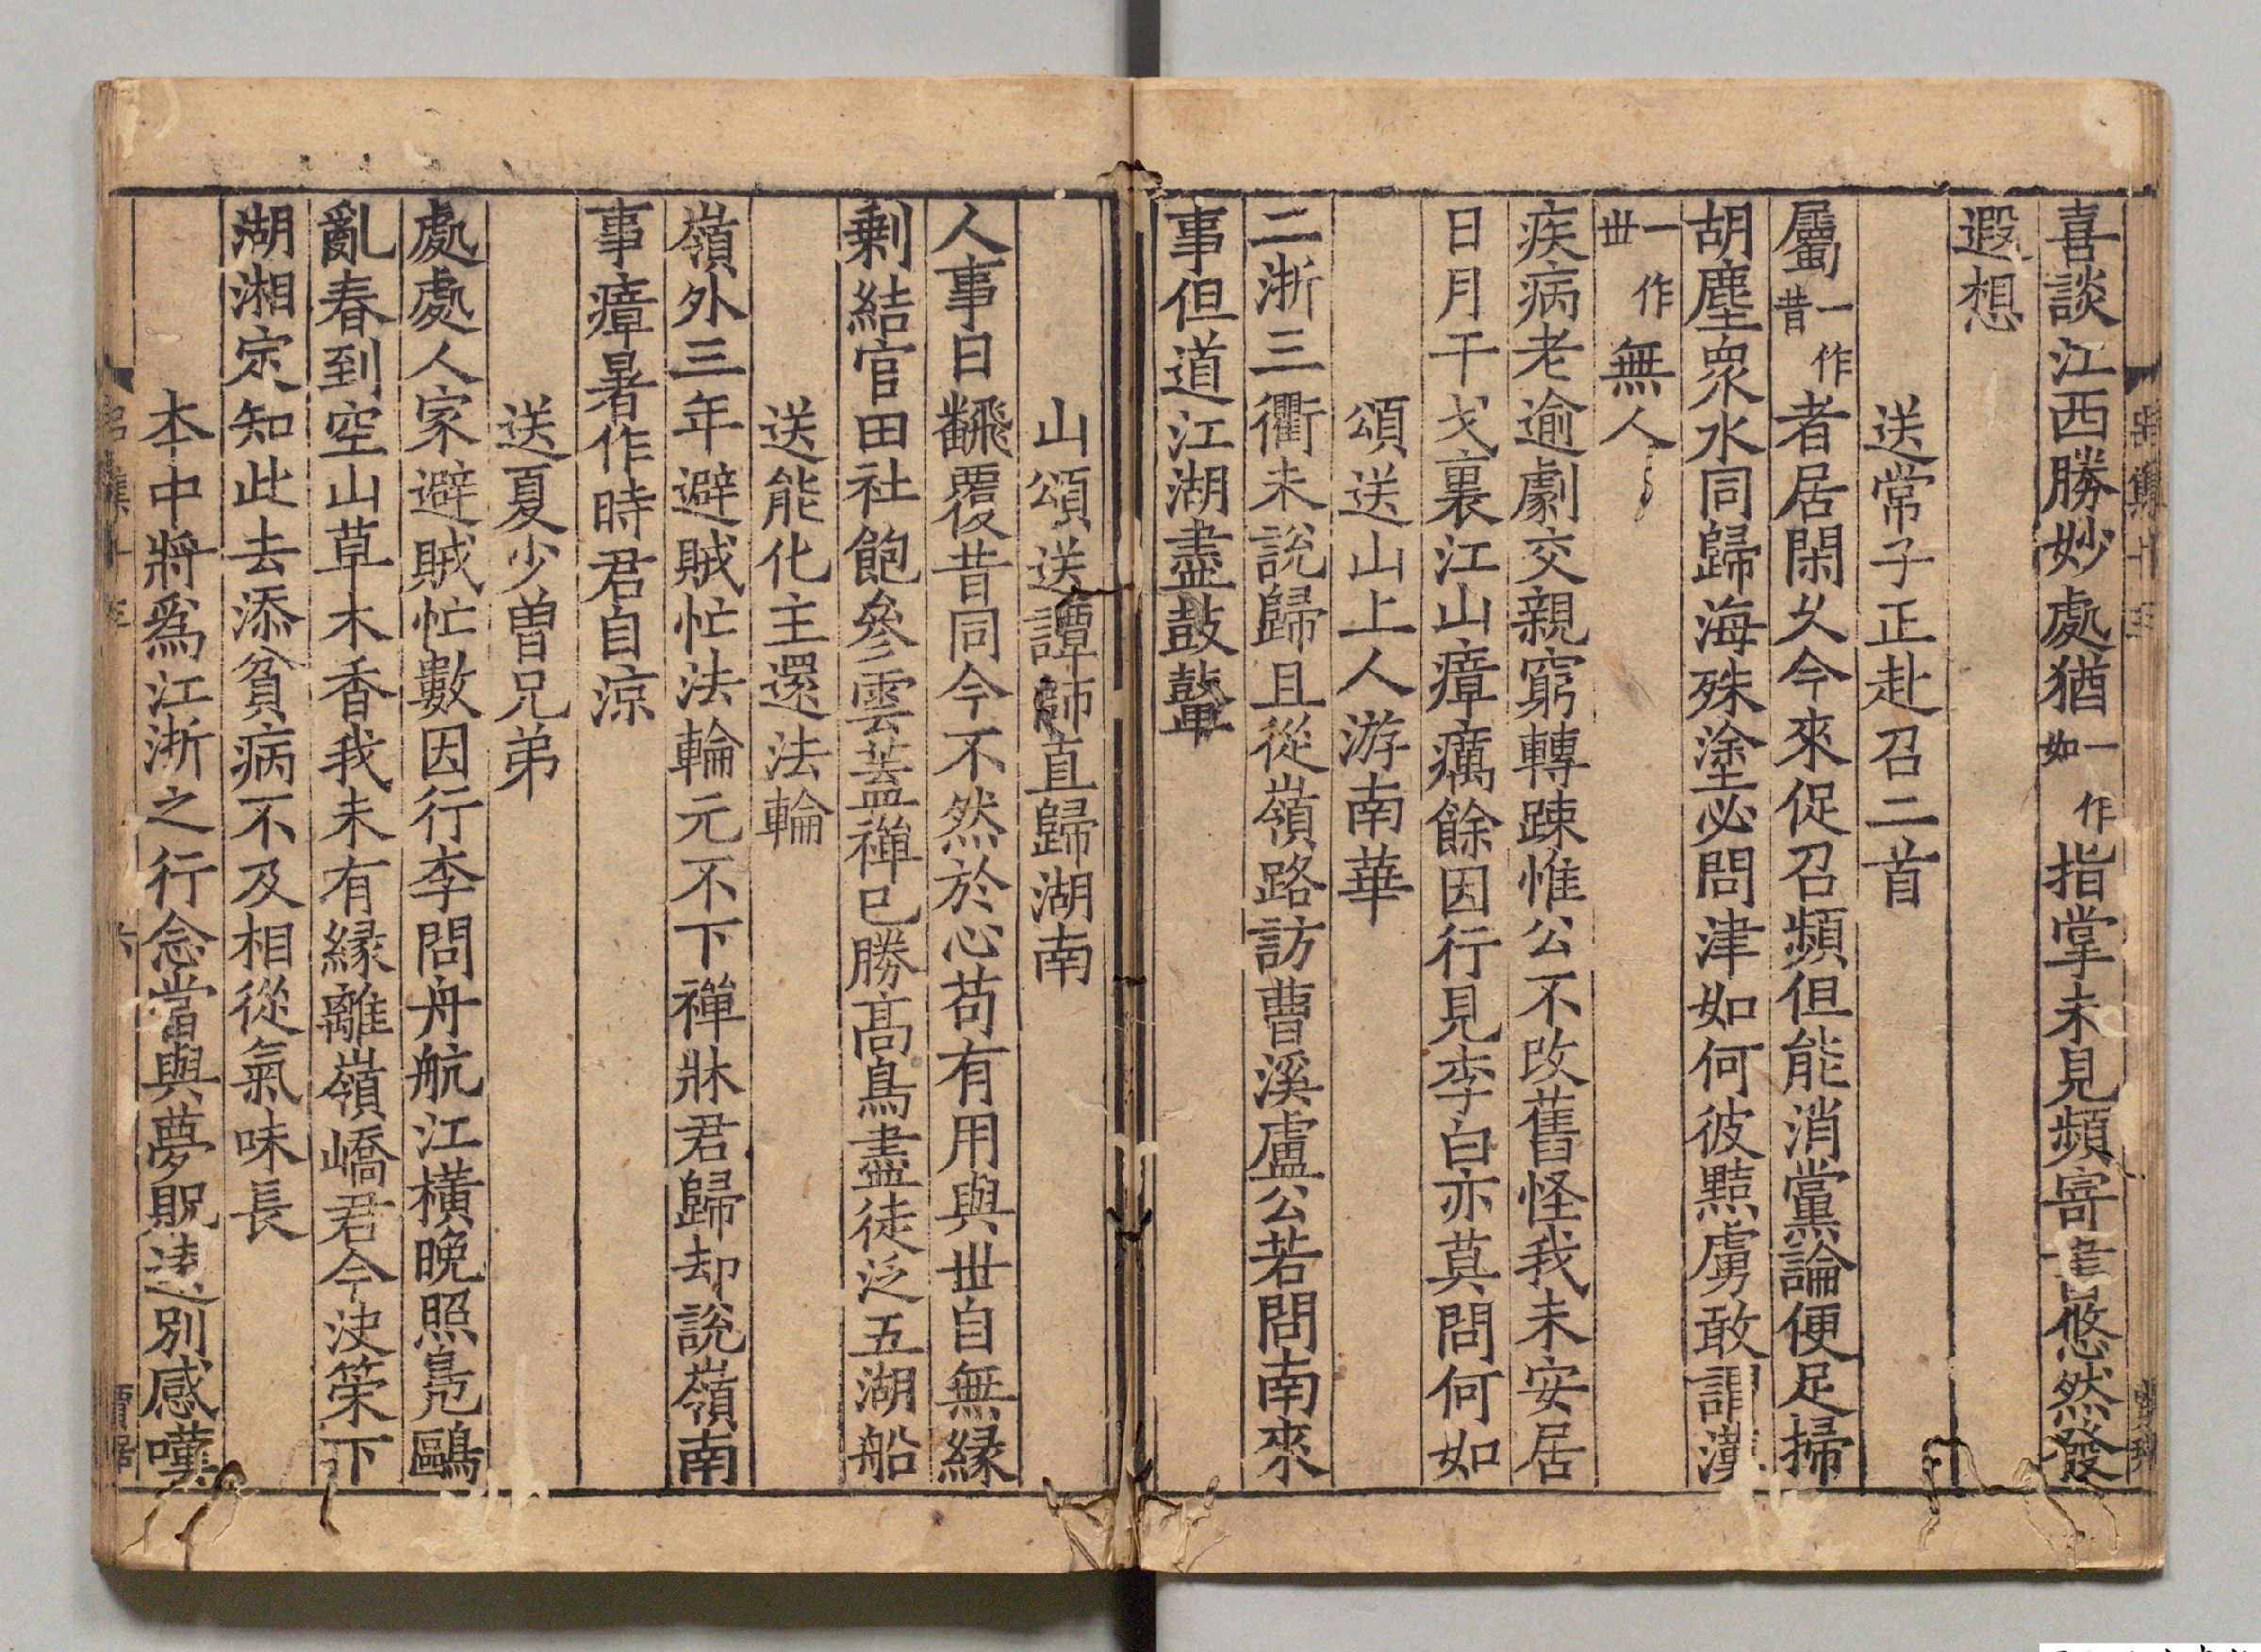 喜談江西勝妙處猶一作如指掌未見頻寄書悠然發
遐想
送常子正赴召二首
屬一作昔者居閑久今來促召頻但能消黨論便足掃
胡塵衆水同歸海殊塗必問津如何彼黠虜敢謂漢
一作世無人
疾病老逾劇交親窮轉踈惟公不改舊怪我未安居
日月干戈裏江山瘴癘餘因行見李白亦莫問何如
頌送山上人游南華
二浙三衢未說歸且從嶺路訪曹溪盧公若問南來
事但道江湖盡鼓鼙
山頌送譚師直歸湖南
人事日飜覆昔同今不然於心苟有用與世自無緣
剩結官田社飽參雲蓋禪已勝高鳥盡徒泛五湖船
送能化主還法輪
嶺外三年避賊忙法輪元不下禪牀君歸却說嶺南
事瘴暑作時君自涼
送夏少曽兄弟
處處人家避賊忙數因行李問舟航江橫晚照鳧鷗
亂春到空山草木香我未有緣離嶺嶠君今決策下
湖湘定知此去添貧病不及相從氣味長
本中將爲江浙之行念當與夢貺遠別感嘆